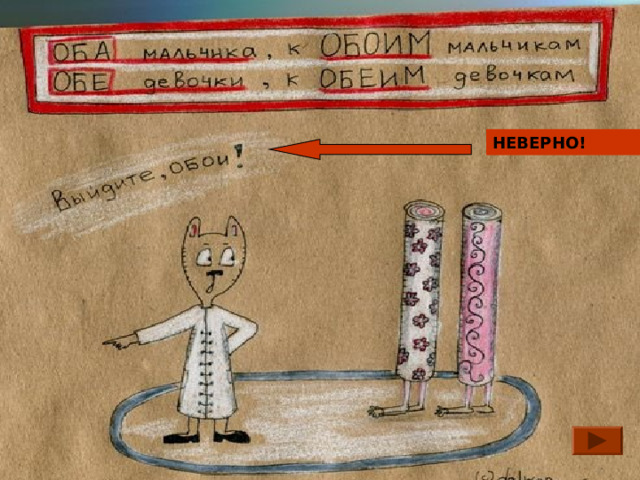 ОБА мальчика, к ОБОИМ мальчикам
ОБЕ девочки, к ОБЕИМ девочкам
НЕВЕРНО!
Выйдите, обои!